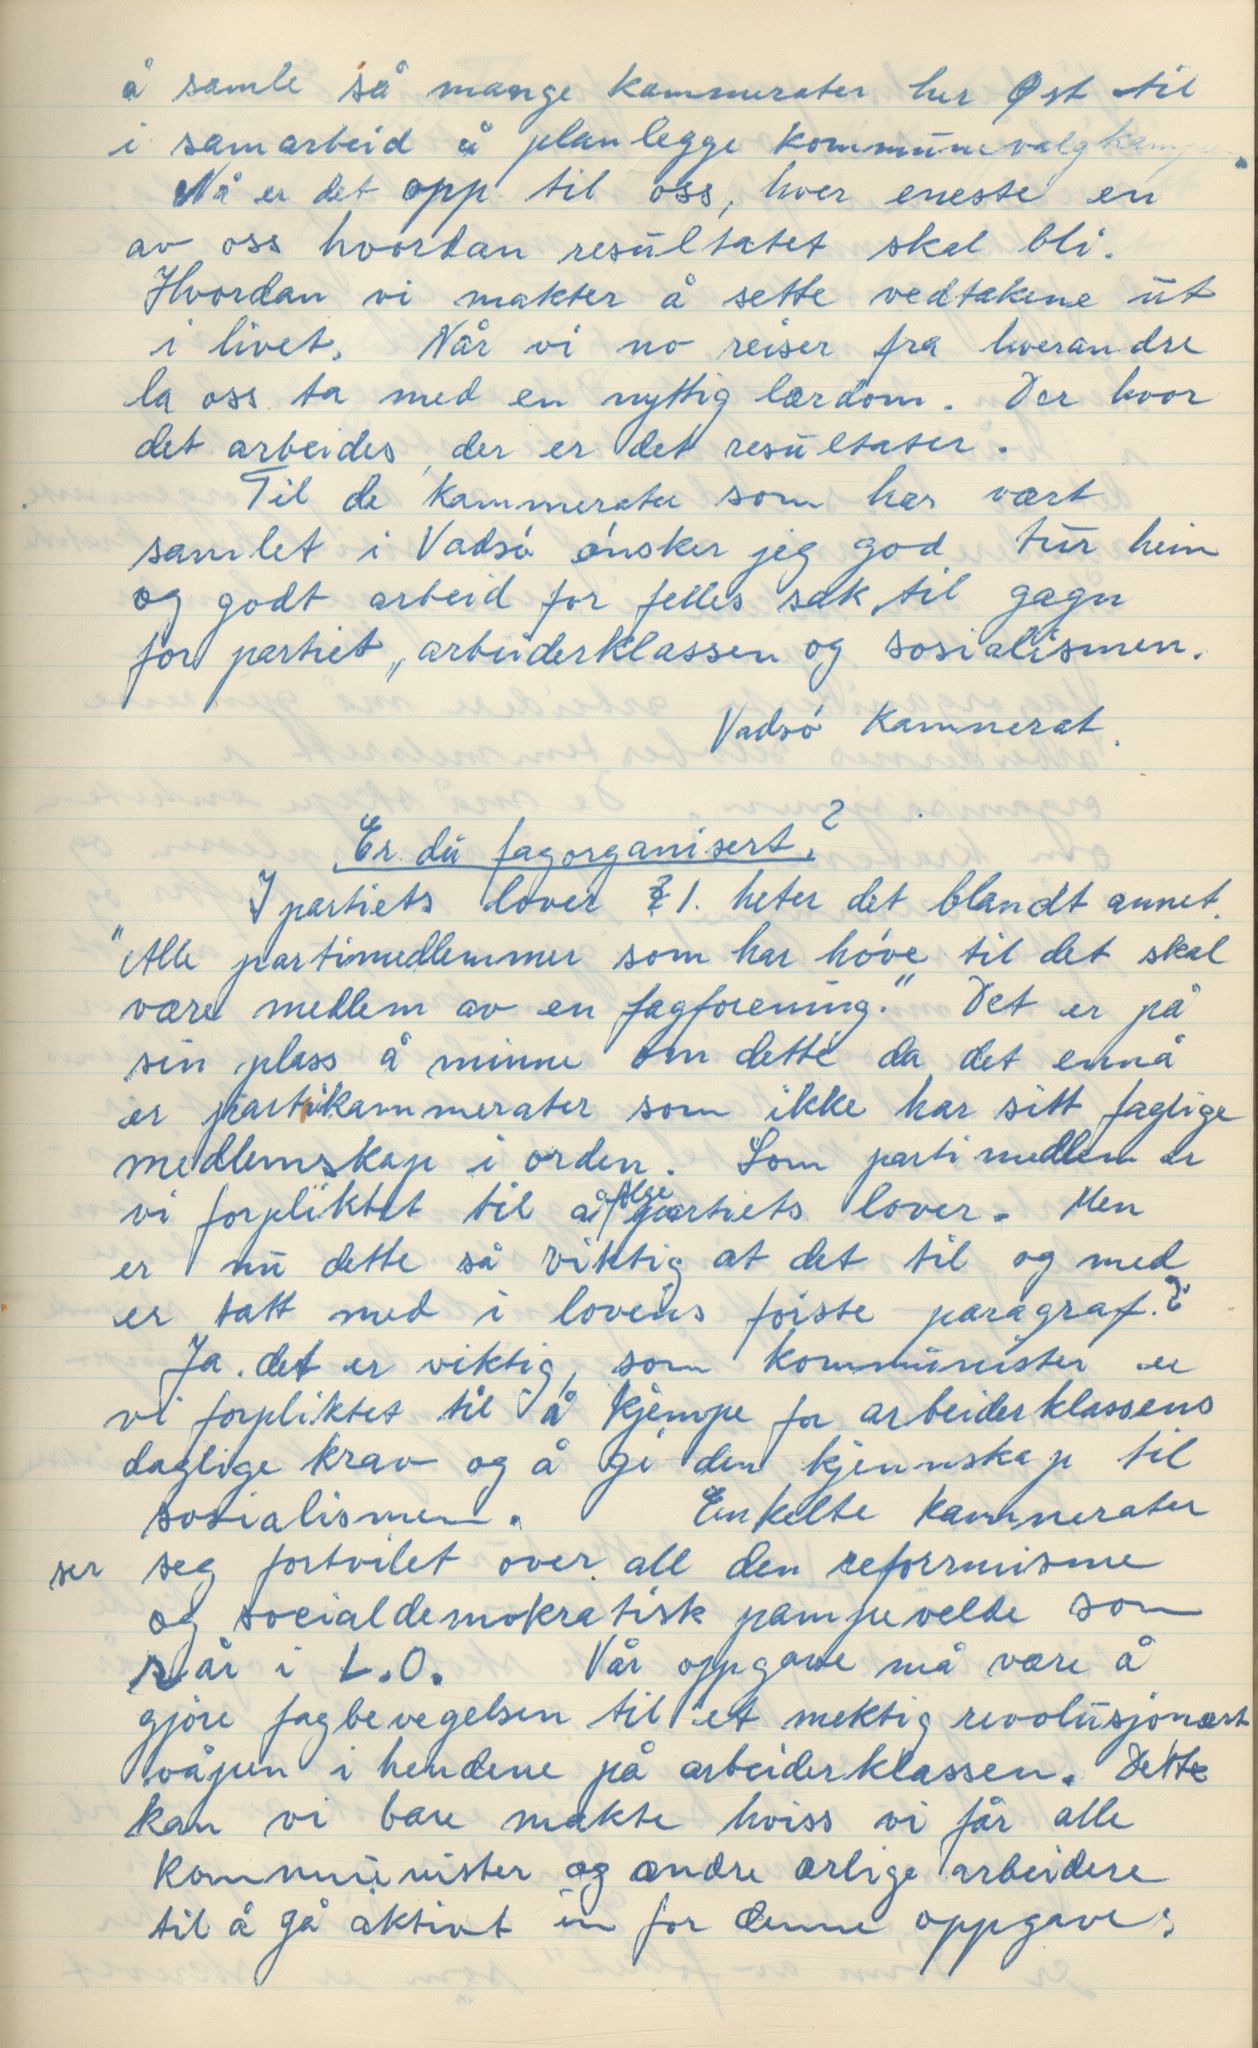 å samle så mange kammerater her Øst til
i samarbeid å planlegge kommunevalgkampen.
Nå er det opp til oss, hver eneste en
av oss hvordan resultatet skal bli.
Hvordan vi makter å sette vedtakene ut
i livet. Når vi no reiser fra hverandre
la oss ta med en nyttig lærdom. Der hvor
det arbeides, der er det resultater.
Til de kammerater som har vært
samlet i Vadsø ønsker jeg god tur heim
og godt arbeid for felles sak, til gagn
for partiet, arbeiderklassen og sosialismen.
Vadsø kammerat.
Er du fagorganisert?
I partiets lover § 1. heter det blandt annet.
"Alle partimedlemmer som har høve til det skal
være medlem av en fagforening." Det er på
sin plass å minne om dette da det ennå
er partikammerater som ikke har sitt faglige
medlemskap i orden. Som partimedlem er
vi forpliktet til å følge partiets lover. Men
er nu dette så viktig at det til og med
er tatt med i lovens første paragraf.?
Ja. det er viktig, som kommunister er
vi forpliktet til å kjempe for arbeiderklassens
daglige krav og å gi den kjennskap til
sosialismen. Enkelte kammerater
ser seg fortvilet over all den reformisme
og socialdemokratisk pampevelde som
rår i L.O. Vår oppgave må være å
gjøre fagbevegelsen til et mektig revolusjonært
våpen i hendene på arbeiderklassen. Dette
kan vi bare makte hviss vi får alle
kommunister og andre ærlige arbeidere
til å gå aktivt inn for denne oppgave: